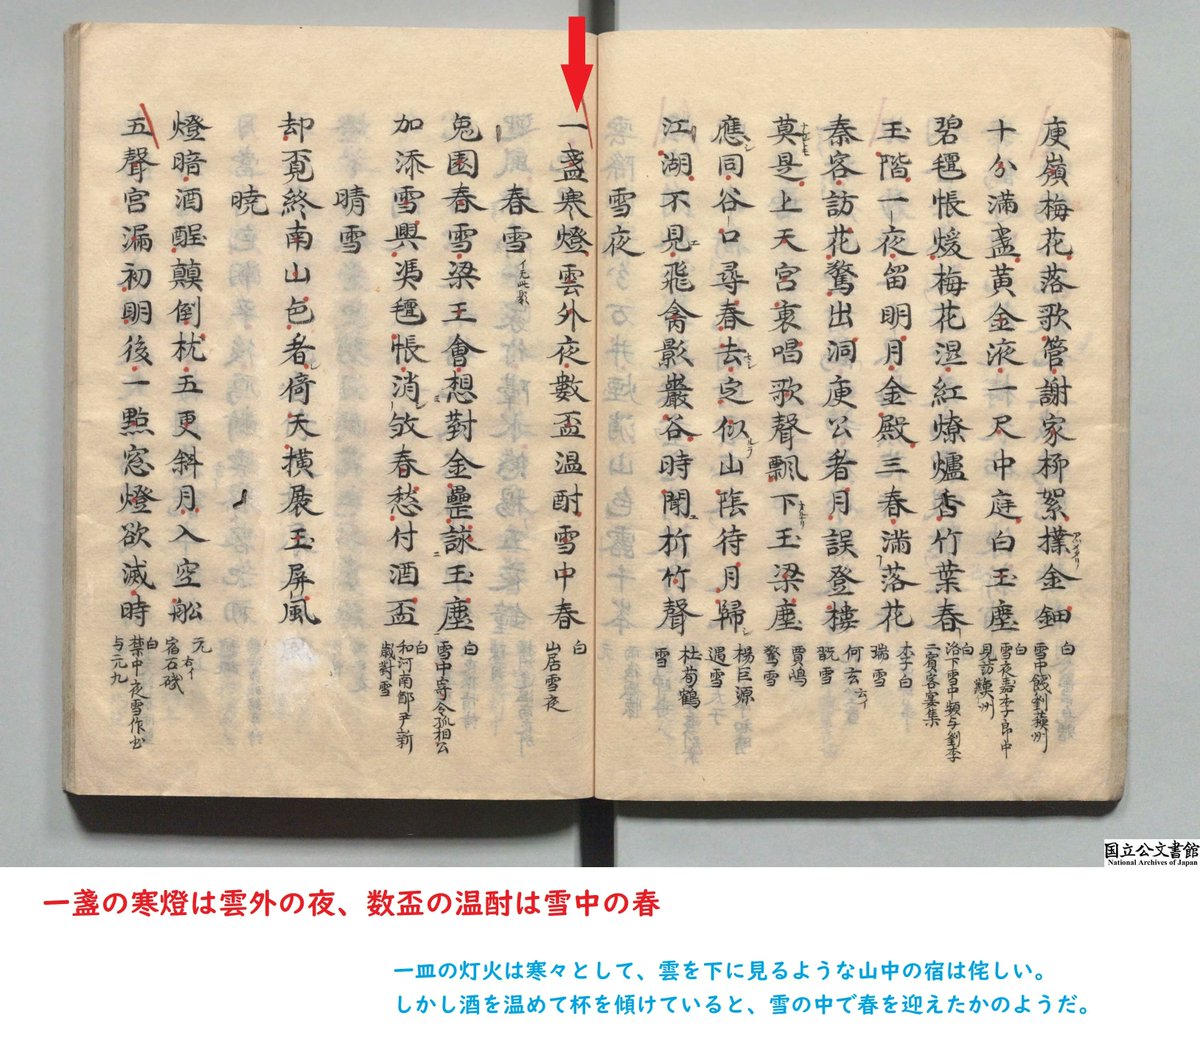 庾嶺梅花落歌管謝家柳絮撲金鈿 白 雪中餞劉蘇州
十分満盞黄金液一尺中庭白玉塵 白 雪夜嘉李郎中見訪
碧氊帳煖梅花湿紅燎爐香竹葉春 白 洛下雪中頻与劉李二賓客宴集
玉階一夜留明月金殿三春満落花 李子白 瑞雪
秦客訪花驚出洞庾公看月誤登樓 何玄 翫雪
莫是上天宮裏唱歌聲飄下玉梁塵 賈嶋 驚雪
應同谷口尋春去定似山陰待月歸 楊巨源 遇雪
江湖不見飛禽影巖谷時聞折竹聲 杜荀鶴 雪
雪夜
一盞寒燈雲外夜數盃温酎雪中春 白 山居雪夜
春雪
兎園春雪梁王會想對金罍詠玉塵 白 雪中寄令狐相公
加添雪興馮氊帳消殺春愁付酒盃 白 和河南鄭尹新歳對雪
晴雪
却覓終南山色看倚天横展玉屏風
暁
燈暗酒醒顛倒枕五更斜月入空舩 元 宿石磯
五聲宮漏初明後一點窓燈欲滅時 白 禁中夜作書与元九
国立公文書館
National Archives of Japan
一盞の寒燈は雲外の夜、数盃の温酎は雪中の春
一皿の灯火は寒々として、雲を下に見るような山中の宿は侘しい。
しかし酒を温めて杯を傾けていると、雪の中で春を迎えたかのようだ。